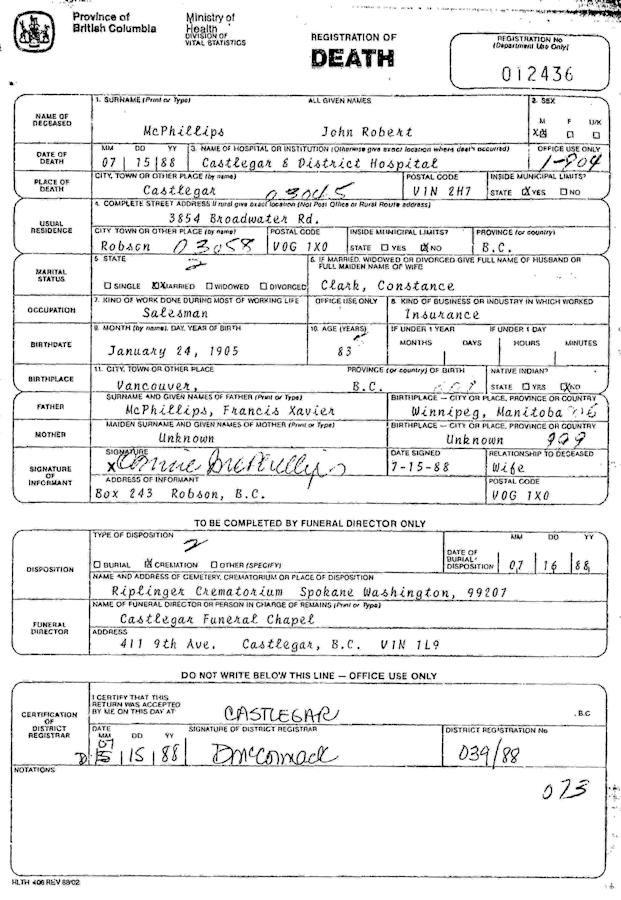 Province of
British Columbia
Ministry of
Health
DIVISION OF
VITAL STATISTICS
REGISTRATION OF
DEATH
REGISTRATION No
(Department Use Only)
012436
NAME OF
DECEASED
1. SURNAME (Print or Type) ALL GIVEN NAMES
McPhillips John Robert
2. SEX
M F U/K
X
DATE OF
DEATH
MM DD YY
07 15 88
3. NAME OF HOSPITAL OR INSTITUTION (Otherwise give exact location where death occurred)
Castlegar & District Hospital
OFFICE USE ONLY
1-804
PLACE OF
DEATH
CITY, TOWN OR OTHER PLACE (by name)
Castlegar 03045
POSTAL CODE
V1N 2H7
INSIDE MUNICIPAL LIMITS?
STATE X YES NO
USUAL
RESIDENCE
4. COMPLETE STREET ADDRESS If rural give exact location (Not Post Office or Rural Route address)
3854 Broadwater Rd.
CITY TOWN OR OTHER PLACE (by name)
Robson 03058
POSTAL CODE
V0G 1X0
INSIDE MUNICIPAL LIMITS?
STATE YES X NO
PROVINCE (or country)
B.C.
MARITAL
STATUS
5 STATE
2
SINGLE X MARRIED WIDOWED DIVORCED
6. IF MARRIED, WIDOWED OR DIVORCED GIVE FULL NAME OF HUSBAND OR
FULL MAIDEN NAME OF WIFE
Clark, Constance
OCCUPATION
7. KIND OF WORK DONE DURING MOST OF WORKING LIFE OFFICE USE ONLY
Salesman
8. KIND OF BUSINESS OR INDUSTRY IN WHICH WORKED
Insurance
BIRTHDATE
9. MONTH (by name), DAY, YEAR OF BIRTH
January 24, 1905
10. AGE (YEARS)
83
IF UNDER 1 YEAR
MONTHS DAYS
IF UNDER 1 DAY
HOURS MINUTES
BIRTHPLACE
11. CITY, TOWN OR OTHER PLACE PROVINCE (or country) OF BIRTH
Vancouver, B.C.
NATIVE INDIAN?
STATE YES X NO
FATHER
SURNAME AND GIVEN NAMES OF FATHER (Print or Type)
McPhillips, Francis Xavier
BIRTHPLACE — CITY OR PLACE, PROVINCE OR COUNTRY
Winnipeg, Manitoba
MOTHER
MAIDEN SURNAME AND GIVEN NAMES OF MOTHER (Print or Type)
Unknown
BIRTHPLACE — CITY OR PLACE, PROVINCE OR COUNTRY
Unknown 999
SIGNATURE
OF
INFORMANT
SIGNATURE
X Connie McPhillips
DATE SIGNED
7-15-88
RELATIONSHIP TO DECEASED
Wife
ADDRESS OF INFORMANT
Box 243 Robson, B.C.
POSTAL CODE
V0G 1X0
TO BE COMPLETED BY FUNERAL DIRECTOR ONLY
DISPOSITION
TYPE OF DISPOSITION
2
BURIAL X CREMATION OTHER (SPECIFY)
DATE OF
BURIAL/
DISPOSITION
MM DD YY
07 16 88
NAME AND ADDRESS OF CEMETERY, CREMATORIUM OR PLACE OF DISPOSITION
Riplinger Crematorium Spokane Washington, 99207
FUNERAL
DIRECTOR
NAME OF FUNERAL DIRECTOR OR PERSON IN CHARGE OF REMAINS (Print or Type)
Castlegar Funeral Chapel
ADDRESS
411 9th Ave. Castlegar, B.C. V1N 1L9
DO NOT WRITE BELOW THIS LINE — OFFICE USE ONLY
CERTIFICATION
OF
DISTRICT
REGISTRAR
I CERTIFY THAT THIS
RETURN WAS ACCEPTED
BY ME ON THIS DAY AT
CASTLEGAR , B.C
DATE
MM DD YY
07 15 88
SIGNATURE OF DISTRICT REGISTRAR
D McCormack
DISTRICT REGISTRATION No
039/88
NOTATIONS
073
HLTH 406 REV 88/02